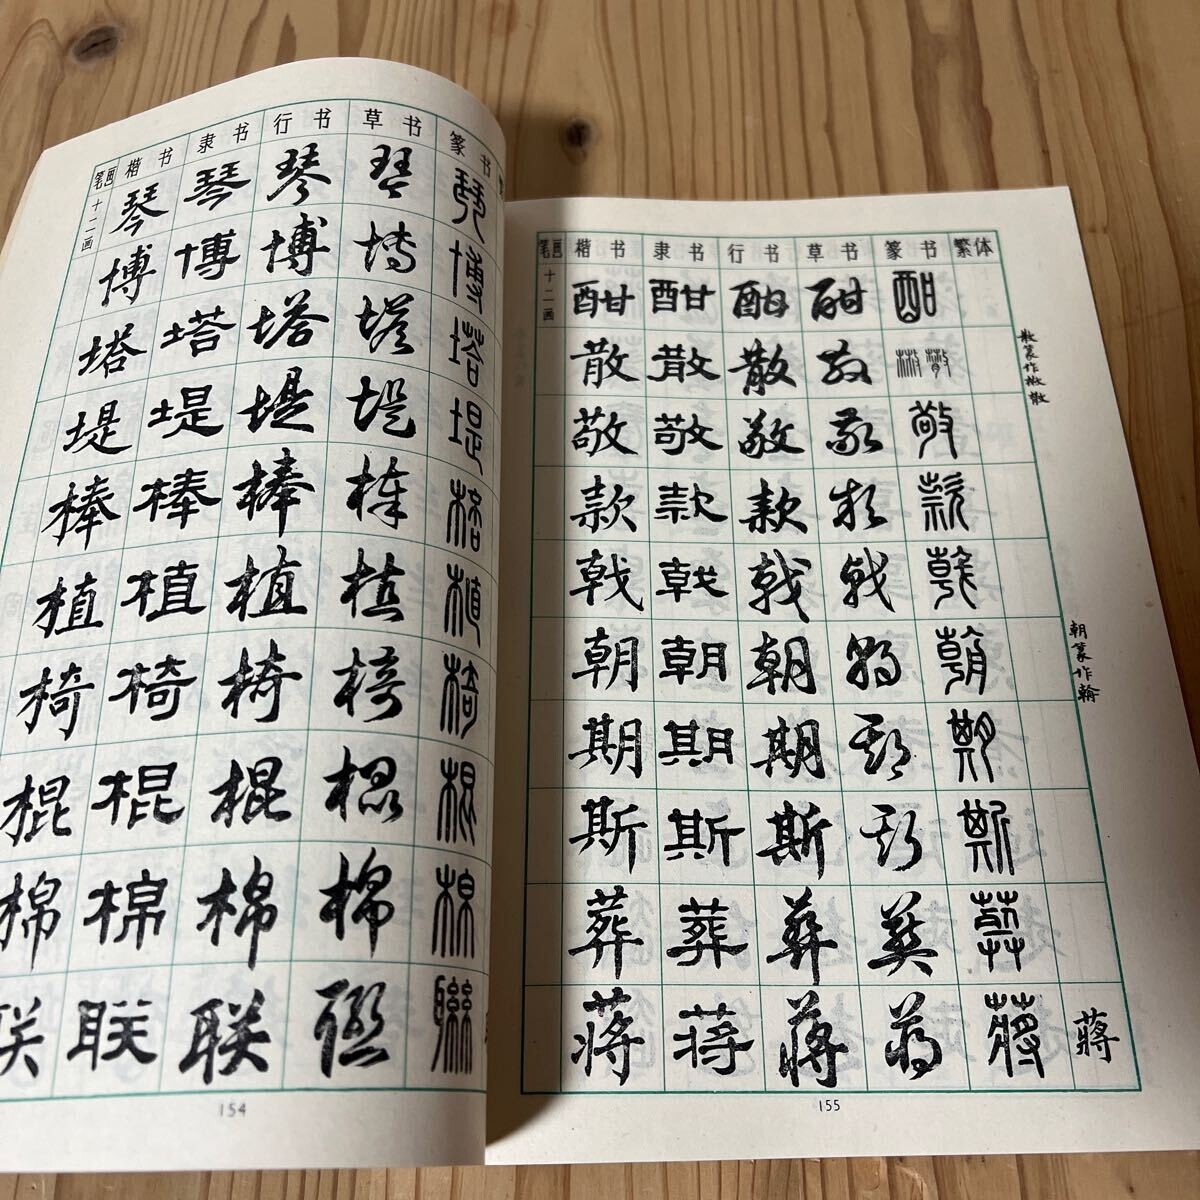 笔画 楷书 隶书 行书 草书 篆书
十二画 琴 琴 琴 琴 琴
博 博 博 博 博
塔 塔 塔 塔 塔
堤 堤 堤 堤 堤
棒 棒 棒 棒
植 植 植 植 植
椅 椅 椅 椅 椅
棍 棍 棍 棍 棍
棉 棉 棉 棉 棉
联 联 联 聯 聯
154
笔画 楷书 隶书 行书 草书 篆书 繁体
十二画 酣 酣 酣 酣 酣
散 散 散 散
敬 敬 敬 敬 敬
款 款 款 款 款
戟 戟 戟 戟 戟
朝 朝 朝 朝 朝
朝篆作翰
期 期 期 期 期
斯 斯 斯 斯 斯
葬 葬 葬 葬 葬
蒋 蒋 蒋 蒋 蒋 蔣
155